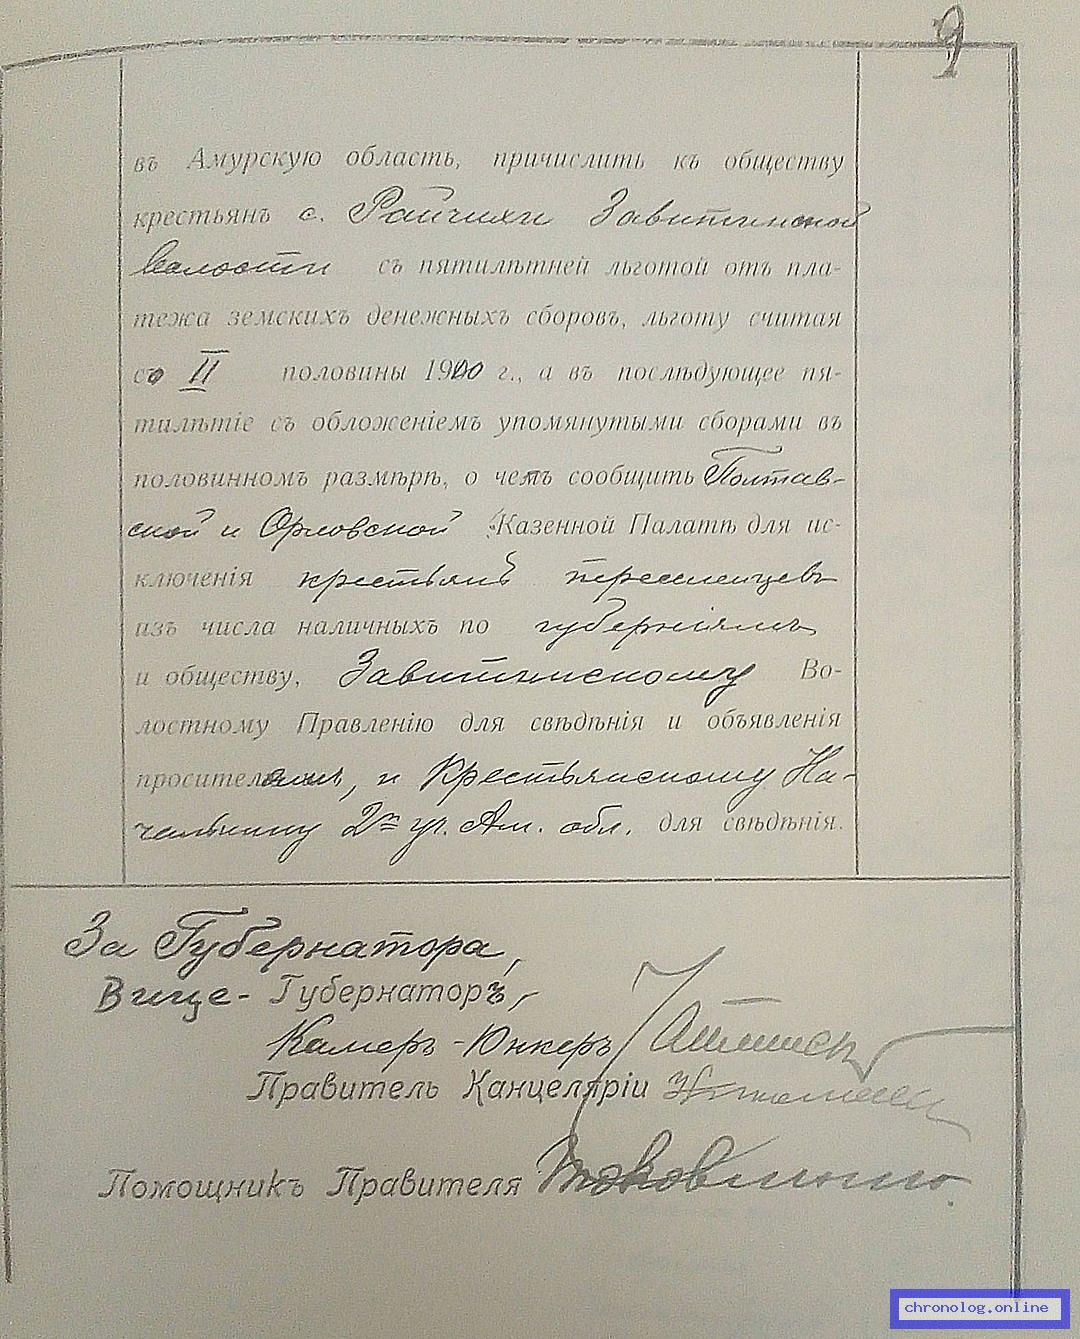 9
въ Амурскую область, причислить къ обществу
крестьянъ с. Райчихи Завитинской
Волости съ пятилѣтней льготой отъ пла-
тежа земскихъ денежныхъ сборовъ, льготу считая
со II половины 1900 г., а въ послѣдующее пя-
тилѣтіе съ обложеніемъ упомянутыми сборами въ
половинномъ размѣрѣ, о чемъ сообщить Полтав-
ской и Орловской Казенной Палатѣ для ис-
ключенія крестьянъ переселенцевъ
изъ числа наличныхъ по губерніямъ
и обществу, Завитинскому Во-
лостному Правленію для свѣдѣнія и объявленія
просителямъ, и Крестьянскому На-
чальнику 2го уч. Ам. обл. для свѣдѣнія.
За Губернатора,
Вице-Губернаторъ,
Камеръ-Юнкеръ
Правитель Канцеляріи
Помощникъ Правителя
chronolog.online